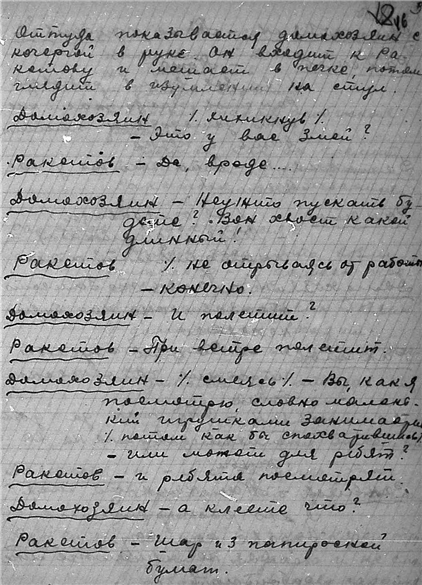 Оттуда показывается домохозяин с
кочергой в руке он входит к Ра-
кетову и мешает в печке, потом
глядит в изумлении на стул.
Домохозяин % %
- Это у вас Змей?
Ракетов - Да, вроде....
Домохозяин - Неужто пускать бу-
дете? Вон хвост какой
длинный!
Ракетов % не отрываясь от работы
- конечно.
Домохозяин - И полетит?
Ракетов - При ветре полетит.
Домохозяин - % смеясь % - Вы, как я
посмотрю, словно малень-
кий игрушками занимаетесь
% потом как бы спохватившись %
- или может для рбят?
Ракетов - и рбята посмотрят.
Домохозяин - а клеете что?
Ракетов - Шар из папиросной
бумаги.